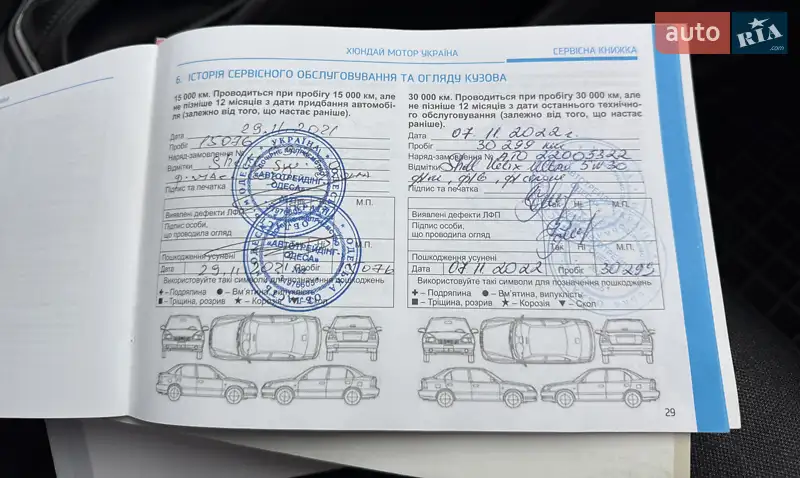 auto RIA
.com
ХЮНДАЙ МОТОР УКРАЇНА
СЕРВІСНА КНИЖКА
6. ІСТОРІЯ СЕРВІСНОГО ОБСЛУГОВУВАННЯ ТА ОГЛЯДУ КУЗОВА
15 000 км. Проводиться при пробігу 15 000 км, але
не пізніше 12 місяців з дати придбання автомобі-
ля (залежно від того, що настає раніше).
Дата 29.11 2021
Пробіг 15076
Наряд-замовлення №
Відмітки
Підпис та печатка
М.П.
Виявлені дефекти ЛФП
Підпис особи,
що проводила огляд
М.П.
Пошкодження усунені
Дата 29.11 2021 Пробіг
Використовуйте такі символи для позначення пошкоджень
+ – Подряпина ● – Вм'ятина, випуклість
■ – Тріщина, розрив ★ – Корозія – Скол
УКРАЇНА
ОДЕСА
«АВТОТРЕЙДІНГ-
ОДЕСА»
«АВТОТРЕЙДІНГ-
ОДЕСА»
30 000 км. Проводиться при пробігу 30 000 км, але
не пізніше 12 місяців з дати останнього технічно-
го обслуговування (залежно від того, що настає
раніше).
Дата 07.11 2022г.
Пробіг 30 299 км
Наряд-замовлення № АТО 22003322
Відмітки Shell Helix Ultra 5W30
Підпис та печатка
Так Ні М.П.
Виявлені дефекти ЛФП
Підпис особи,
що проводила огляд
Так Ні М.П.
Пошкодження усунені
Дата 07.11 2022 Пробіг 30299
Використовуйте такі символи для позначення пошкоджень
+ – Подряпина ● – Вм'ятина, випуклість
■ – Тріщина, розрив ★ – Корозія ▼ – Скол
29